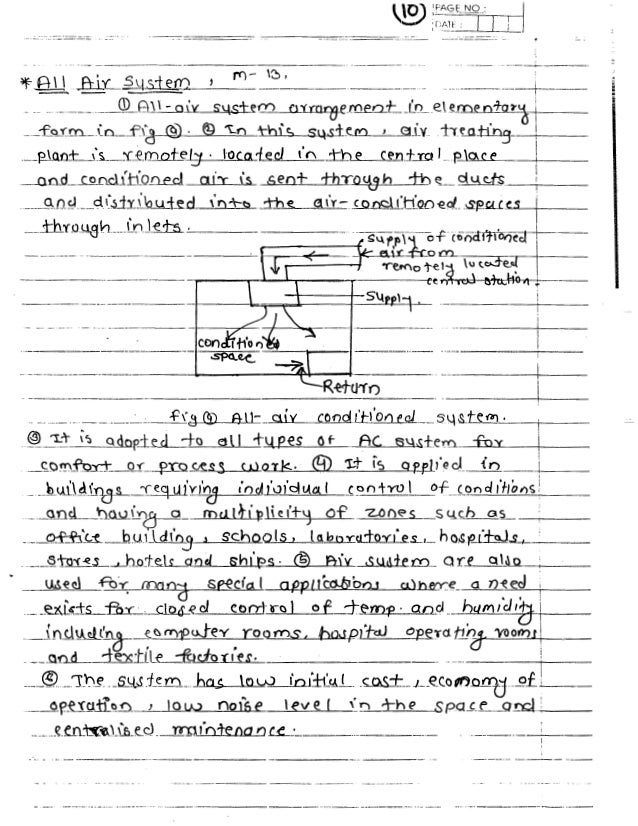 10 PAGE NO :
DATE :
* All Air System , M- 13.
① All-air system arrangement in elementary
form in fig ⓐ. ② In this system , air treating
plant is remotely. located in the central place
and conditioned air is sent through the ducts
and distributed into the air-conditioned spaces
through inlets.
supply of conditioned
air from
remotely located
central station.
supply.
conditioned
space
Return
fig ⓐ All- air conditioned system.
③ It is adopted to all types of AC system for
comfort or process work. ④ It is applied in
buildings requiring individual control of conditions
and having a multiplicity of zones such as
office building , schools, laboratories, hospitals,
stores , hotels and ships. ⑤ Air system are also
used for many special applications where a need
exists for closed control of temp. and humidity
including computer rooms, hospital operating rooms
and textile factories.
⑥ The system has low initial cost , economy of
operation , low noise level in the space and
centralised maintenance.